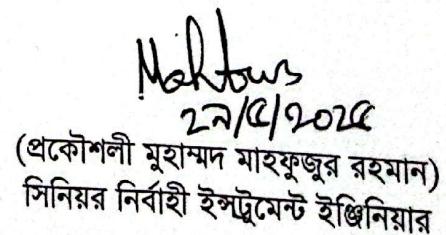 ২৯/৫/২০২৫
(প্রকৌশলী মুহাম্মদ মাহফুজুর রহমান)
সিনিয়র নির্বাহী ইন্সট্রুমেন্ট ইঞ্জিনিয়ার